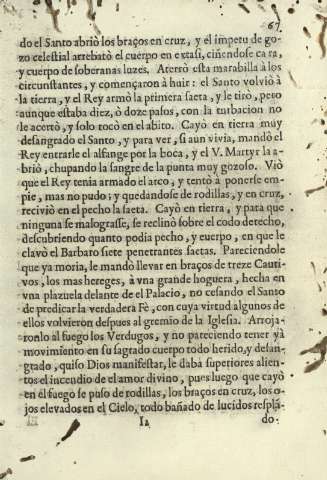 67
do el Santo abriò los braços en cruz, y el impetu de go-
zo celestial arrebatò el cuerpo en extasi, ciñendose cara,
y cuerpo de soberanas luzes. Aterrò esta marabilla à los
circunstantes, y començaron à huir: el Santo volviò à
la tierra, y el Rey armò la primera saeta, y le tirò, pero
aunque estaba diez, ò doze pasos, con la turbacion no
le acertò, y solo tocò en el abito. Cayò en tierra muy
desangrado el Santo, y para ver, si aun vivia, mandò el
Rey entrarle el alfange por la boca, y el V. Martyr la a-
briò, chupando la sangre de la punta muy gozoso. Viò
que el Rey tenia armado el arco, y tentò à ponerse em-
pie, mas no pudo; y quedandose de rodillas, y en cruz,
reciviò en el pecho la saeta. Cayò en tierra, y para que
ninguna se malograsse, se reclinò sobre el codo derecho,
descubriendo quanto podia pecho, y cuerpo, en que le
clavò el Barbaro siete penetrantes saetas. Pareciendole
que ya moria, le mandò llevar en braços de treze Cauti-
vos, los mas hereges, à vna grande hoguera, hecha en
vna plazuela delante de el Palacio, no cesando el Santo
de predicar la verdadera Fè, con cuya virtud algunos de
ellos volvieron despues al gremio de la Iglesia. Arroja-
ronlo al fuego los Verdugos, y no pareciendo tener yà
movimiento en su sagrado cuerpo todo herido, y desan-
grado, quiso Dios manifestar, le daba superiores alien-
tos el incendio de el amor divino, pues luego que cayò
en el fuego se puso de rodillas, los braços en cruz, los o-
jos elevados en el Cielo, todo bañado de lucidos resplã-
I2 do-